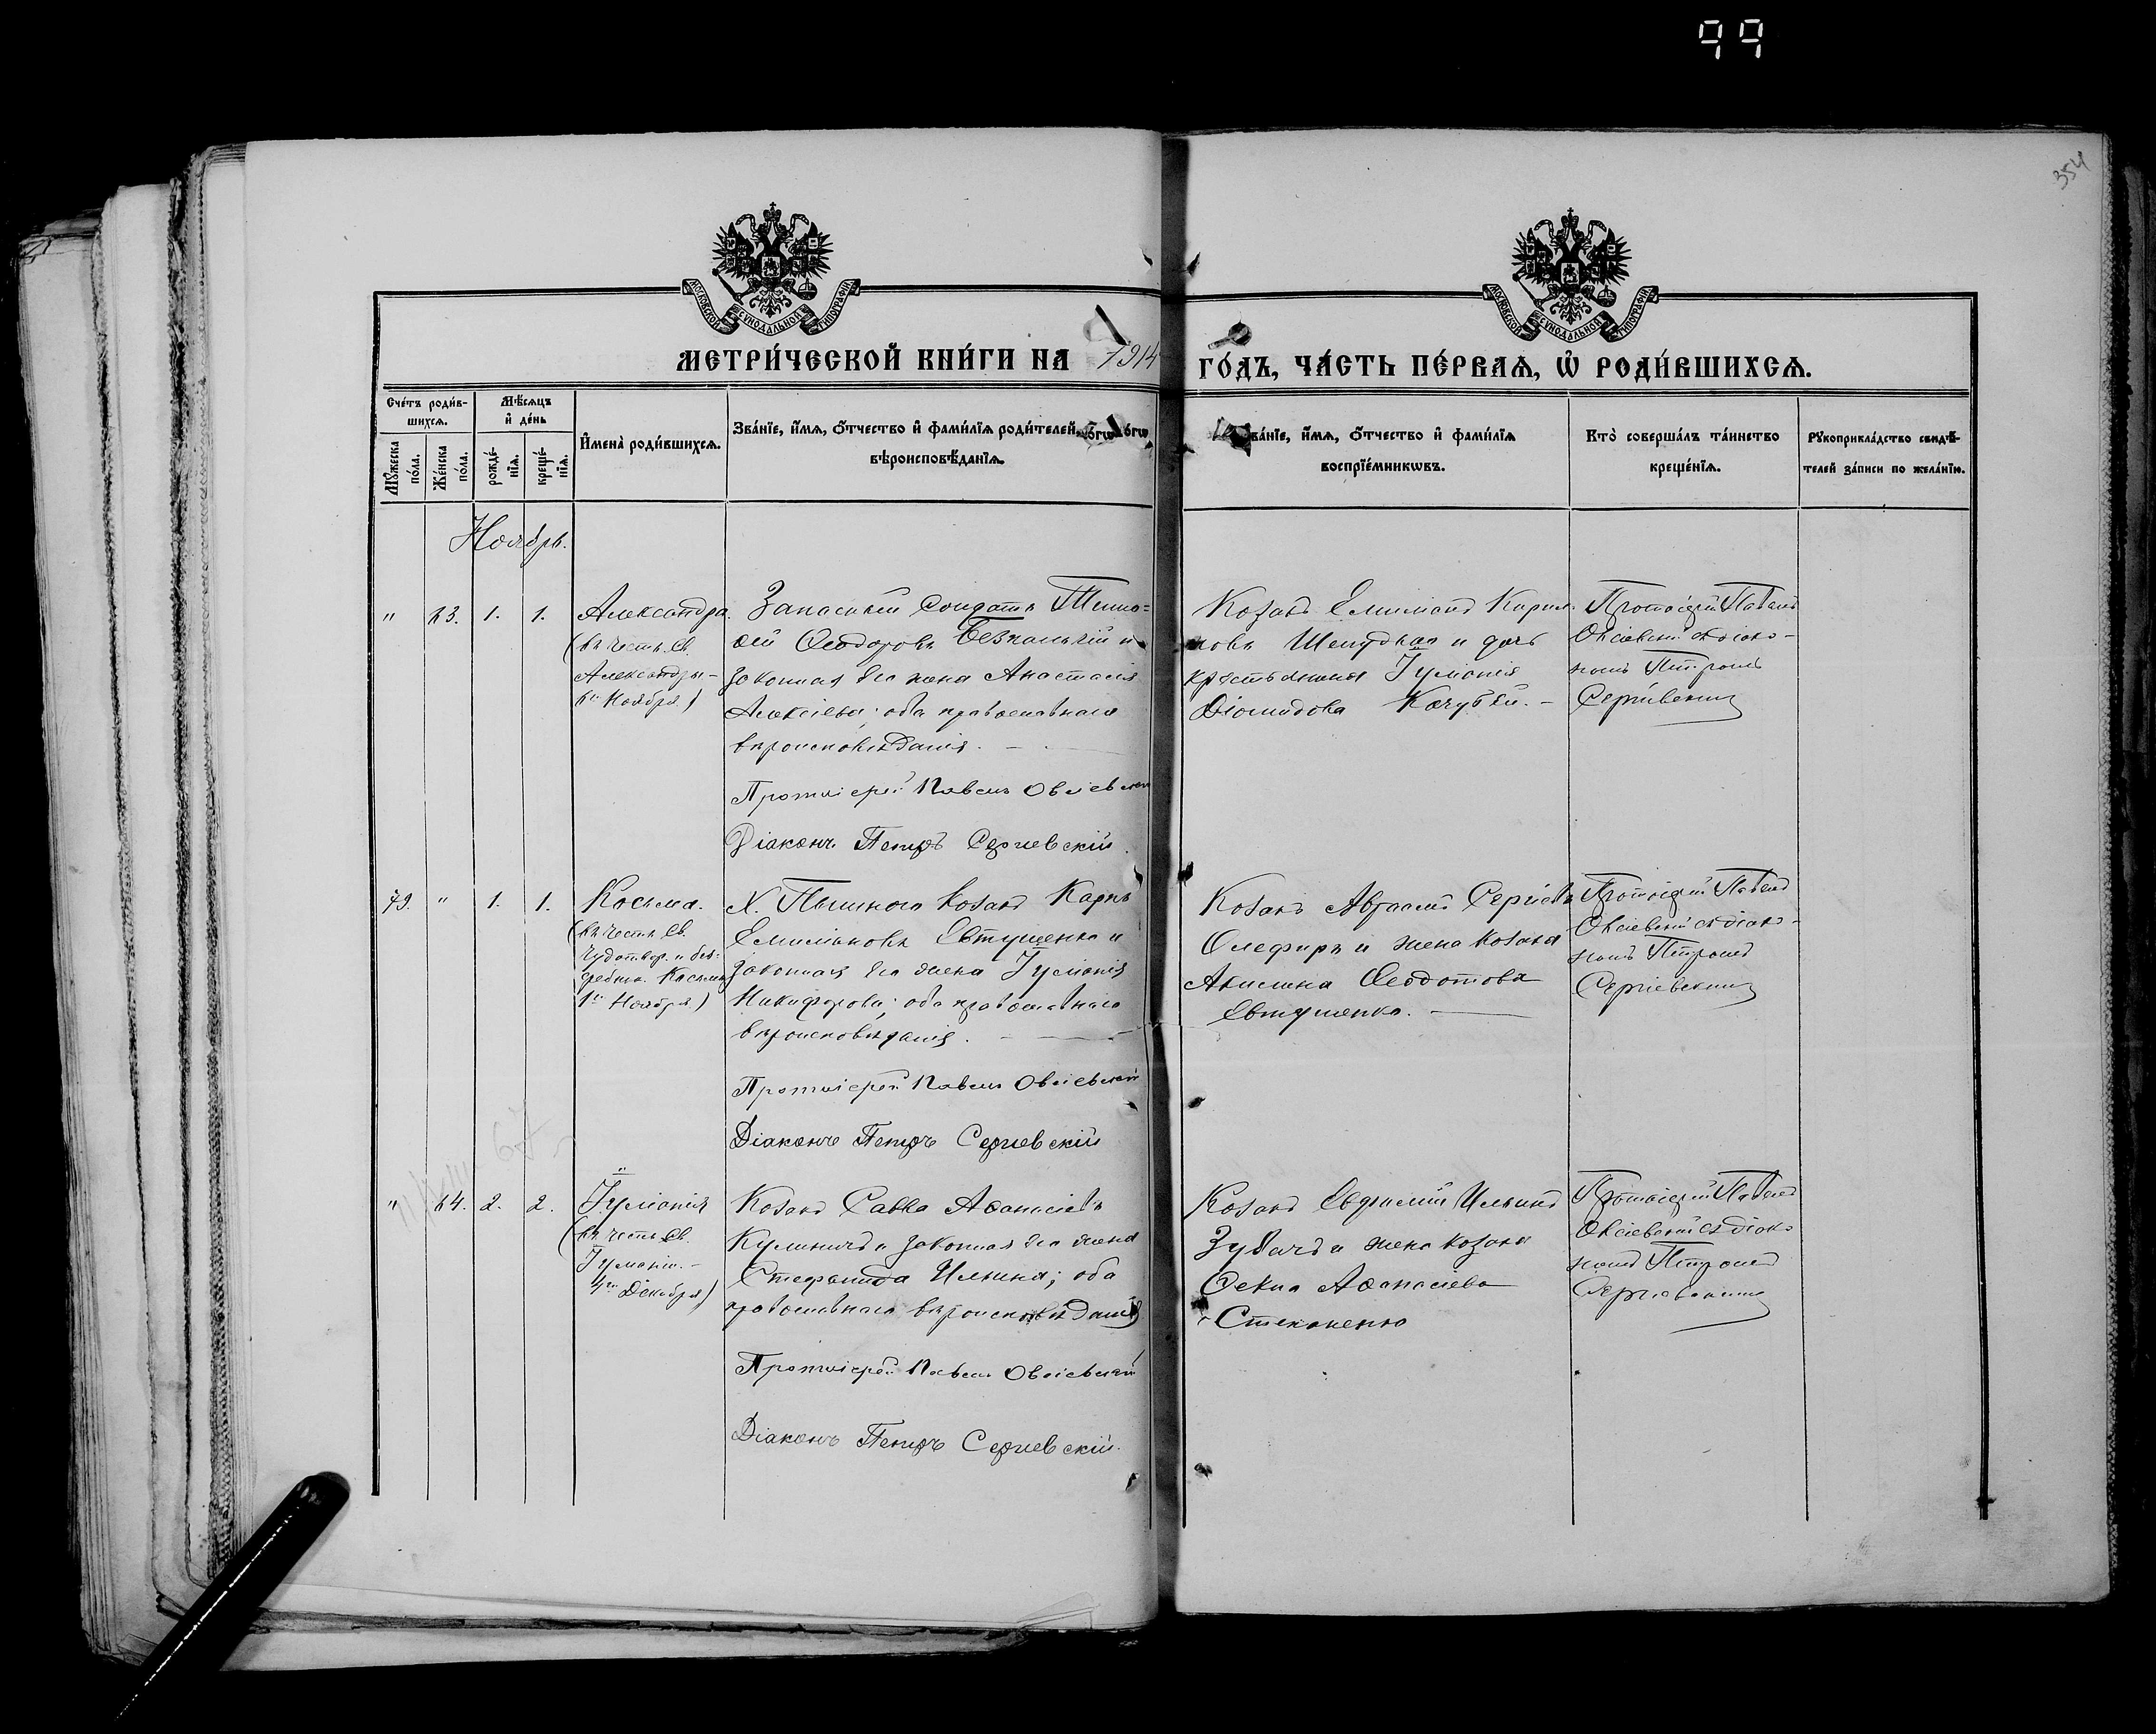 99
354
МОСКОВСКОЙ СѴНОДАЛЬНОЙ ТИПОГРАФІИ
МОСКОВСКОЙ СѴНОДАЛЬНОЙ ТИПОГРАФІИ
МЕТРИ́ЧЕСКОЙ КНИ́ГИ НА 1914 ГО́ДЪ, ЧА́СТЬ ПЕ́РВАѦ, Ѡ҆ РОДИ́ВШИХСѦ.
Сче́тъ роди́в-
шихсѧ.
Мꙋ́жеска по́ла.
Же́нска по́ла.
Мѣ́сѧцъ
и҆ де́нь
рожде́-
нїѧ.
креще́-
нїѧ.
И҆мена̀ роди́вшихсѧ.
Зва́нїе, и҆́мѧ, ѻ҆́тчество и҆ фами́лїѧ роди́телей,
вѣроисповѣ́данїѧ.
Зва́нїе, и҆́мѧ, ѻ҆́тчество и҆ фами́лїѧ
воспрїе́мникѡвъ.
Кто̀ соверша́лъ та́инство
креще́нїѧ.
Рꙋкоприкла́дство свидѣ́-
телей за́писи по жела́нїю.
Ноябрь.
" 63. 1. 1.
Александра.
(въ честь св.
Александры –
6го Ноября)
Запасный солдатъ Тимо=
ѳей Ѳеодоровъ Безпалый и
законная его жена Анастасія
Алексіева; оба православнаго
вѣроисповѣданія. –
Протоіерей Павелъ Овсіевскій
Діаконъ Петръ Сергіевскій
Козакъ Емиліанъ Карпи-
новъ Шепудька и дочь
крестьянина Іуліанія
Діомидова Кочубей. –
Протоіерей Павелъ
Овсіевскій съ діако-
номъ Петромъ
Сергіевскимъ
79. " 1. 1.
Косьма.
(въ честь св.
Чудотвор. и без-
сребрен. Косьмы
1го Ноября)
Х. Пышнаго козакъ Карпъ
Емиліановъ Евтушенко и
законная его жена Іуліанія
Никифорова; оба православнаго
вѣроисповѣданія. –
Протоіерей Павелъ Овсіевскій
Діаконъ Петръ Сергіевскій
Козакъ Авраамій Сергіевъ
Олефиръ и жена козака
Акилина Ѳеодотова
Евтушенко. –
Протоіерей Павелъ
Овсіевскій съ діако-
номъ Петромъ
Сергіевскимъ
" 64. 2. 2.
Іуліанія
(въ честь св.
Іуліаніи. –
4го Декабря)
Козакъ Савва Аѳанасіевъ
Кулиничъ и законная его жена
Стефанида Ильина; оба
православнаго вѣроисповѣданія
Протоіерей Павелъ Овсіевскій
Діаконъ Петръ Сергіевскій.
Козакъ Евфимій Ильинъ
Зубачъ и жена козака
Ѳекла Аѳанасіева
Степаненко
Протоіерей Павелъ
Овсіевскій съ діако-
номъ Петромъ
Сергіевскимъ